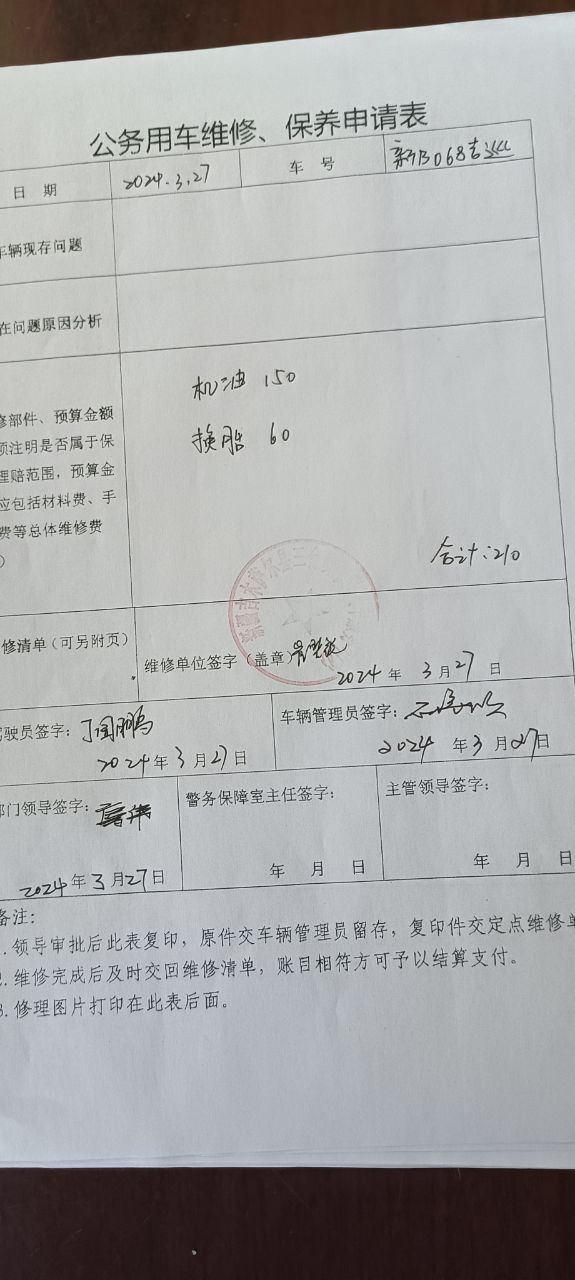 公务用车维修、保养申请表
日 期 2024.3.27 车 号 新B068
车辆现存问题
在问题原因分析
机油 150
修部件、预算金额
须注明是否属于保 换胎 60
理赔范围，预算金
应包括材料费、手
费等总体维修费
）
合计：210
修清单（可另附页） 维修单位签字（盖章）
2024 年 3 月 27 日
驾驶员签字：丁国鹏 车辆管理员签字：
2024 年 3 月 27 日 2024 年 3 月 27 日
部门领导签字： 警务保障室主任签字： 主管领导签字：
2024 年 3 月 27 日 年 月 日 年 月 日
备注：
1.领导审批后此表复印，原件交车辆管理员留存，复印件交定点维修单
2.维修完成后及时交回维修清单，账目相符方可予以结算支付。
3.修理图片打印在此表后面。